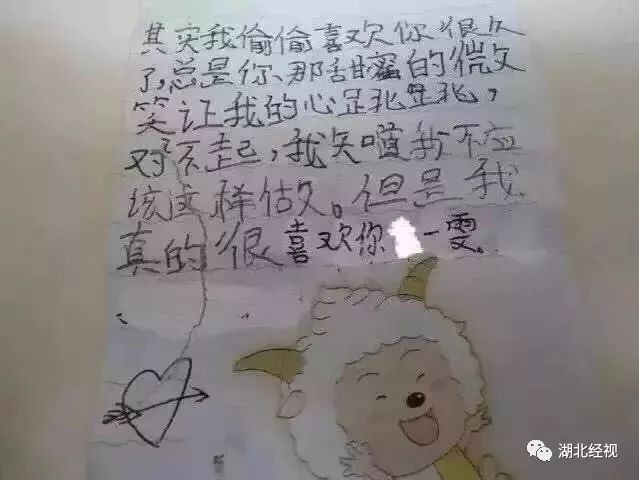 其实我偷偷喜欢你很久
了,总是你、那甜蜜的微
笑让我的心足兆足兆,
对不起,我矢道我不应
该这样做。但是我
真的很喜欢你 一雯。
湖北经视